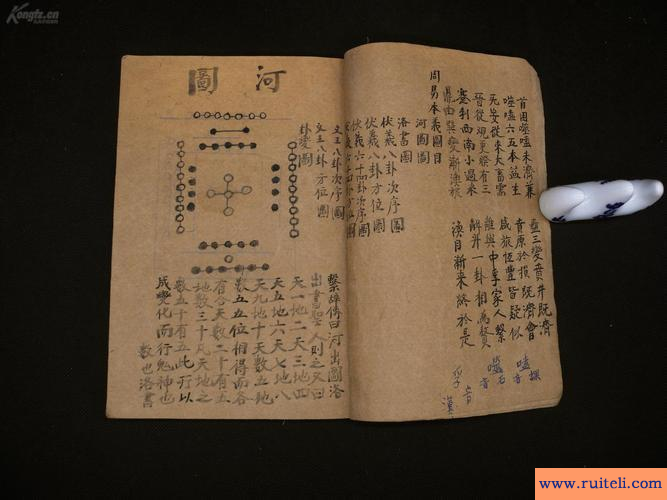 Kongfz.cn
首困噬嗑未濟兼 蠱三變賁井既濟
噬嗑六五本益生 賁原於損既濟會
无妄從來大畜需 咸旅恆豐皆疑似
晉從觀更睽有三 離與中孚家人繫
蹇利西南小過來 解升一卦相為贅
鼎由巽變漸渙旅 渙自漸來終於是
嗑音
噬音
孚音
周易本義圖目
河圖圖
洛書圖
伏羲八卦次序圖
伏羲八卦方位圖
伏羲六十四卦次序圖
文王八卦次序圖
文王八卦方位圖
卦變圖
河圖
繫辭傳曰河出圖洛
出書聖人則之又曰
天一地二天三地四
天五地六天七地八
天九地十天數五地
數五五位相得而各
有合天數二十有五
地數三十凡天地之
數五十有五此所以
成變化而行鬼神也
數也洛書
www.ruiteli.com